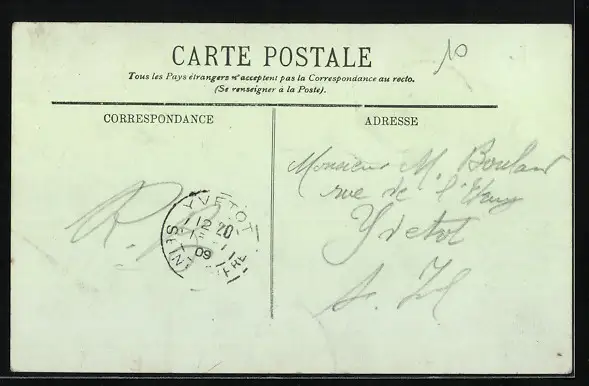 CARTE POSTALE
10
Tous les Pays étrangers n'acceptent pas la Correspondance au recto.
(Se renseigner à la Poste).
CORRESPONDANCE
ADRESSE
Monsieur M. Boulard
rue de l'Etang
Yvetot
S. If
R.
YVETOT
12 20
09
SEINE INFRE